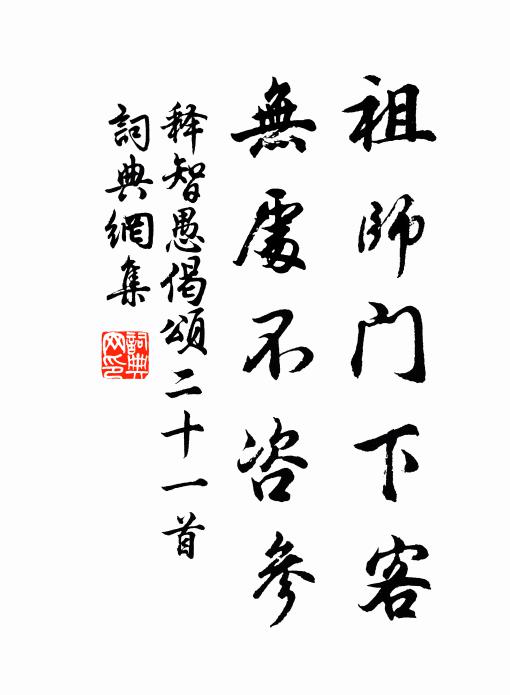 祖師门下客
無處不咨參
释智愚偈頌二十一首
詞典網集
詞典網印